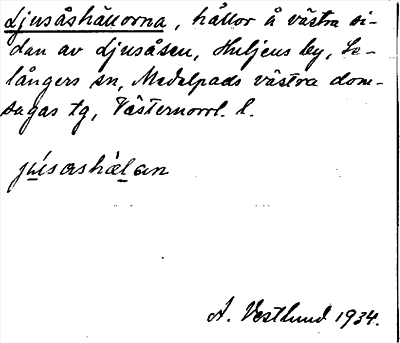 Ljusåshällorna, hällor å västra si-
dan av Ljusåsen, Huljens by, Se-
långers sn, Medelpads västra dom-
sagas tg, Västernorrl. l.
júsoshælan
A. Vestlund 1934.